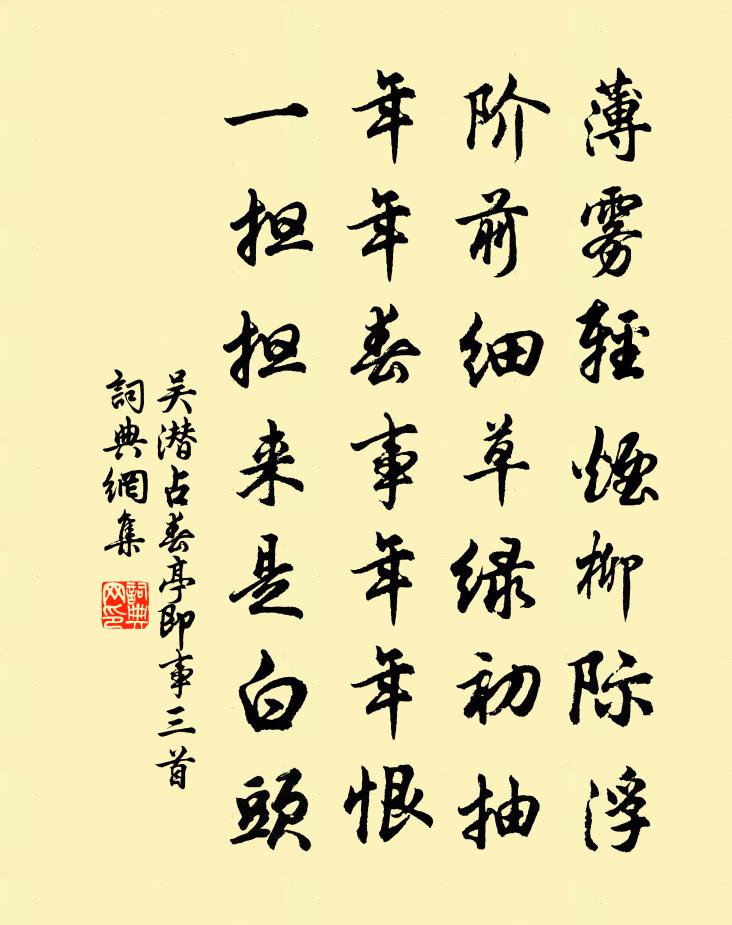 薄雾輕煙柳际浮
阶前细草绿初抽
年年春事年年恨
一担担来是白頭
吴潜占春亭即事三首
詞典網集
詞典网印